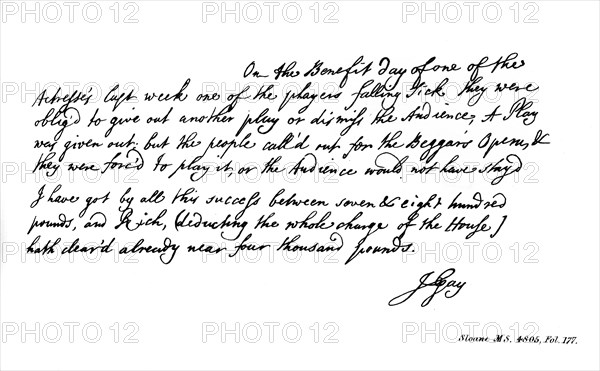 On the Benefit day of one of the
Actresse's last week one of the players falling sick they were
oblig'd to give out another play or dismiss the Audience, A Play
was given out, but the people call'd out for the Beggar's Opera, &
they were forc'd to play it, or the Audience would not have stay'd
I have got by all this success between seven & eight hundred
pounds, and Rich, (deducting the whole charge of the House)
hath clear'd already near four thousand pounds.
J Gay
Sloane MS. 4805, Fol. 177.
PHOTO 12